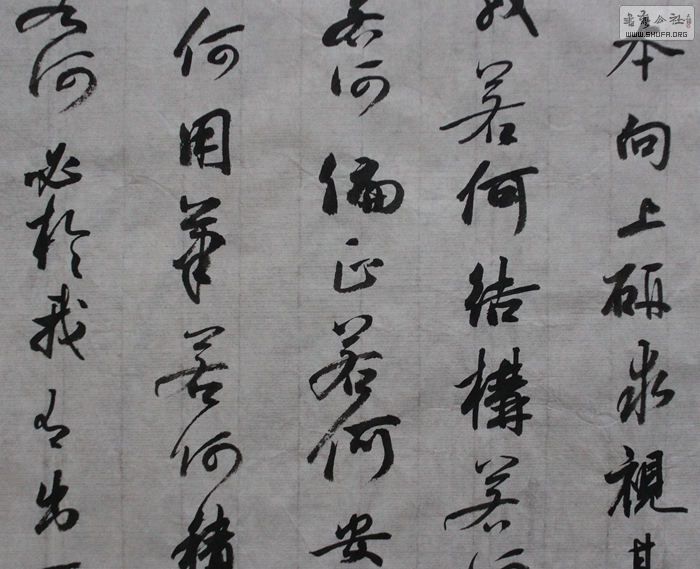 本向上研求視其
若何結構若何
若何偏正若何安
何用筆若何積
若何必於我有出
WWW.SHUFA.ORG